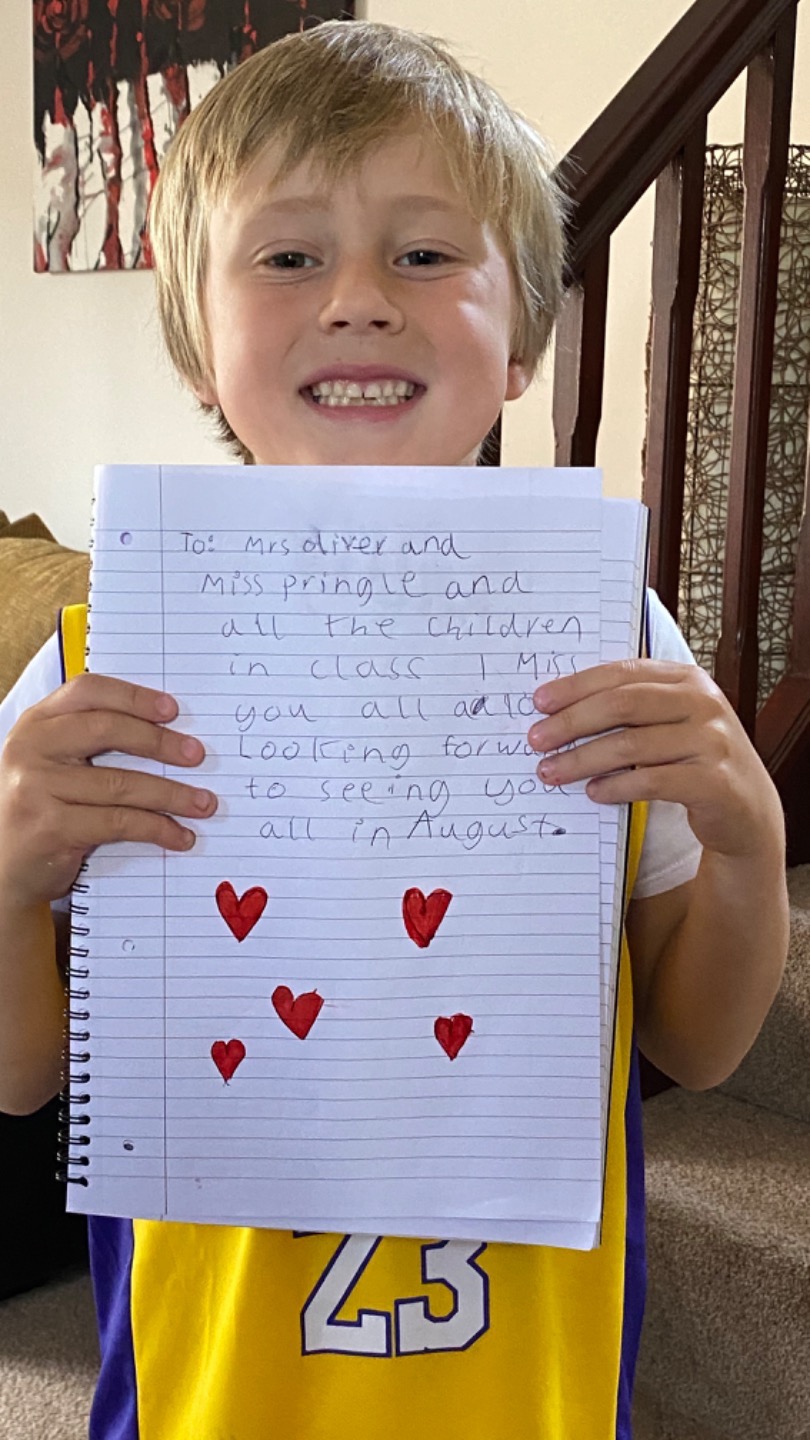 To: Mrs oliver and
Miss pringle and
all the children
in class I Miss
you all
Looking forward
to seeing you
all in August.
23